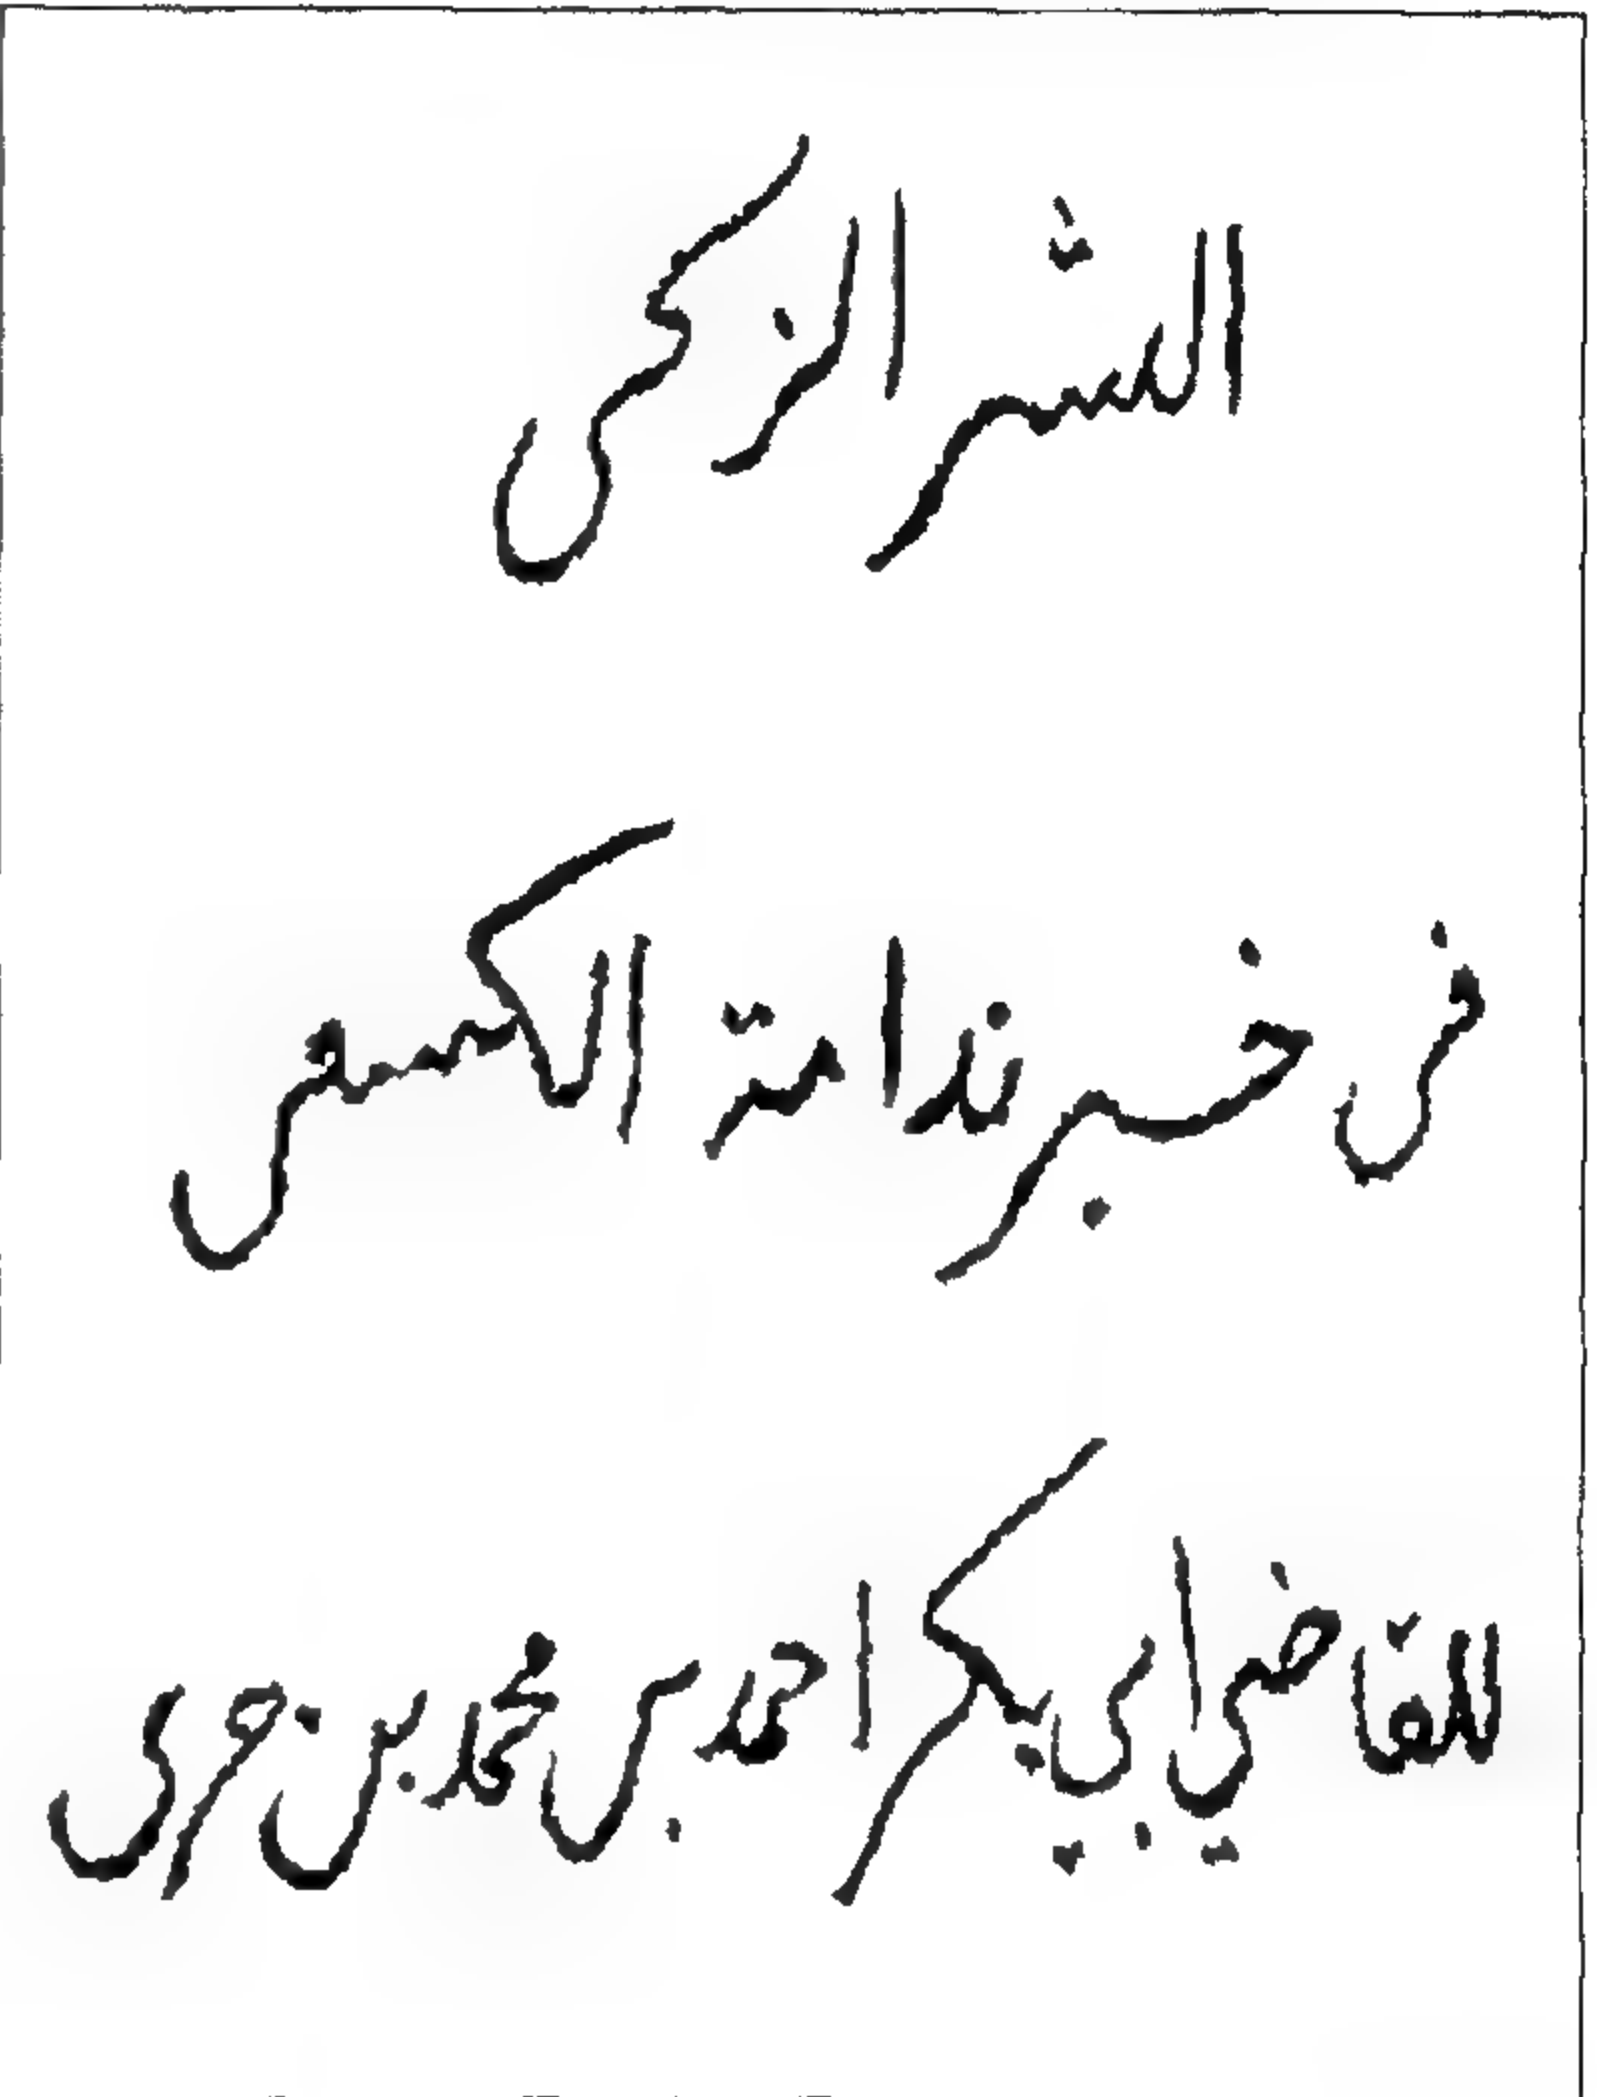 النشر الزكي
في خبر ندامة الكسعي
للقاضي ابي بكر احمد بن محمد بن